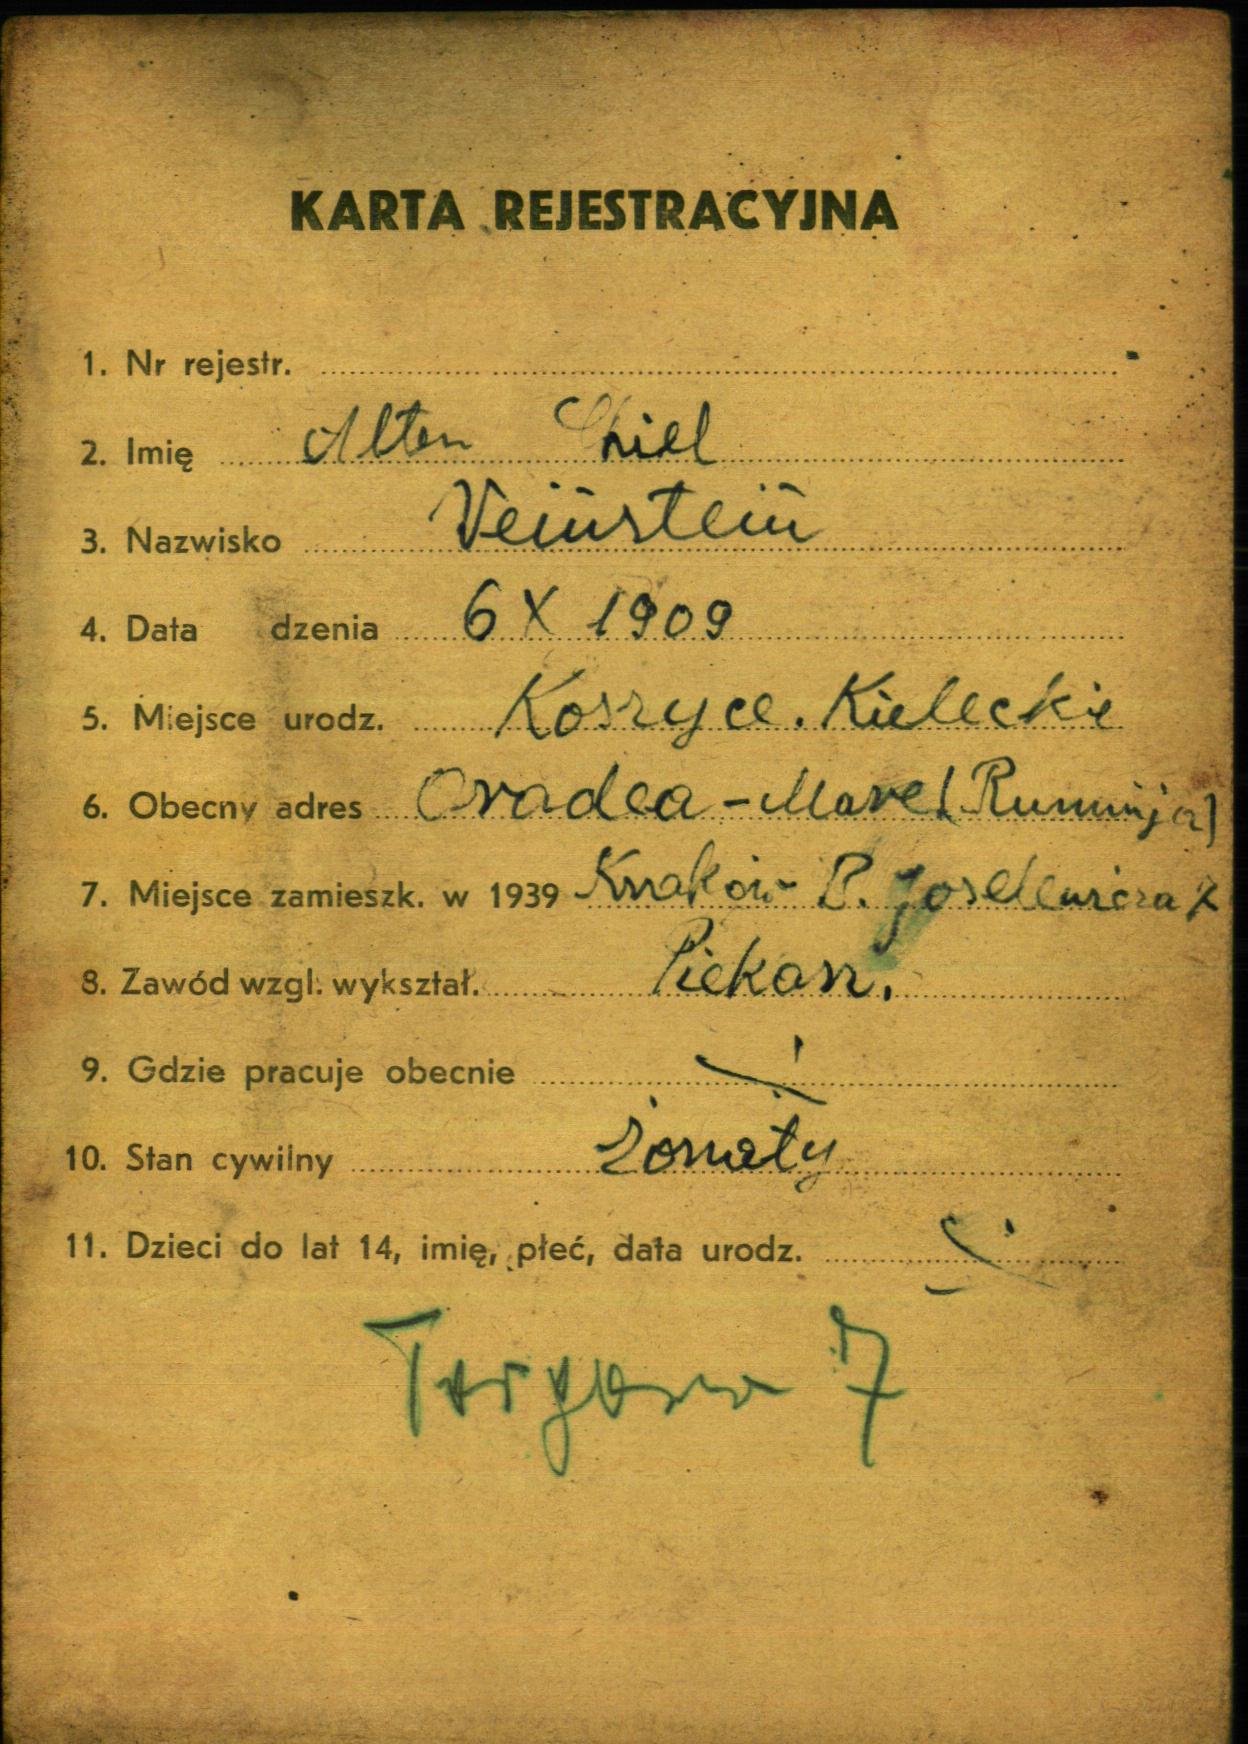 KARTA REJESTRACYJNA
1. Nr rejestr.
2. Imię Alter Chiel
3. Nazwisko Veinstein
4. Data dzenia 6 X 1909
5. Miejsce urodz. Koszyce. Kieleckie
6. Obecny adres Oradea - Mare (Rumunja)
7. Miejsce zamieszk. w 1939 Kraków B. Joselewicza
8. Zawód wzgl. wykształ. Piekarz.
9. Gdzie pracuje obecnie
10. Stan cywilny żonaty
11. Dzieci do lat 14, imię, płeć, data urodz.
Targowa 7